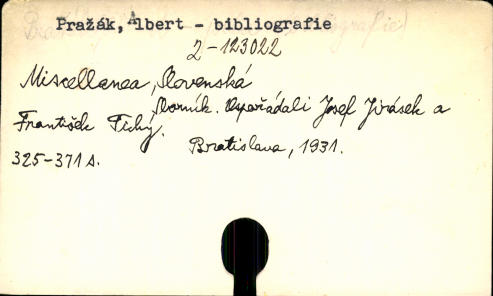 Pražák, Albert - bibliografie
2-123022
Miscellanea, Slovenská
Sborník. Uspořádali Josef Jirásek a
František Tichý.
Bratislava, 1931.
325-371 s.